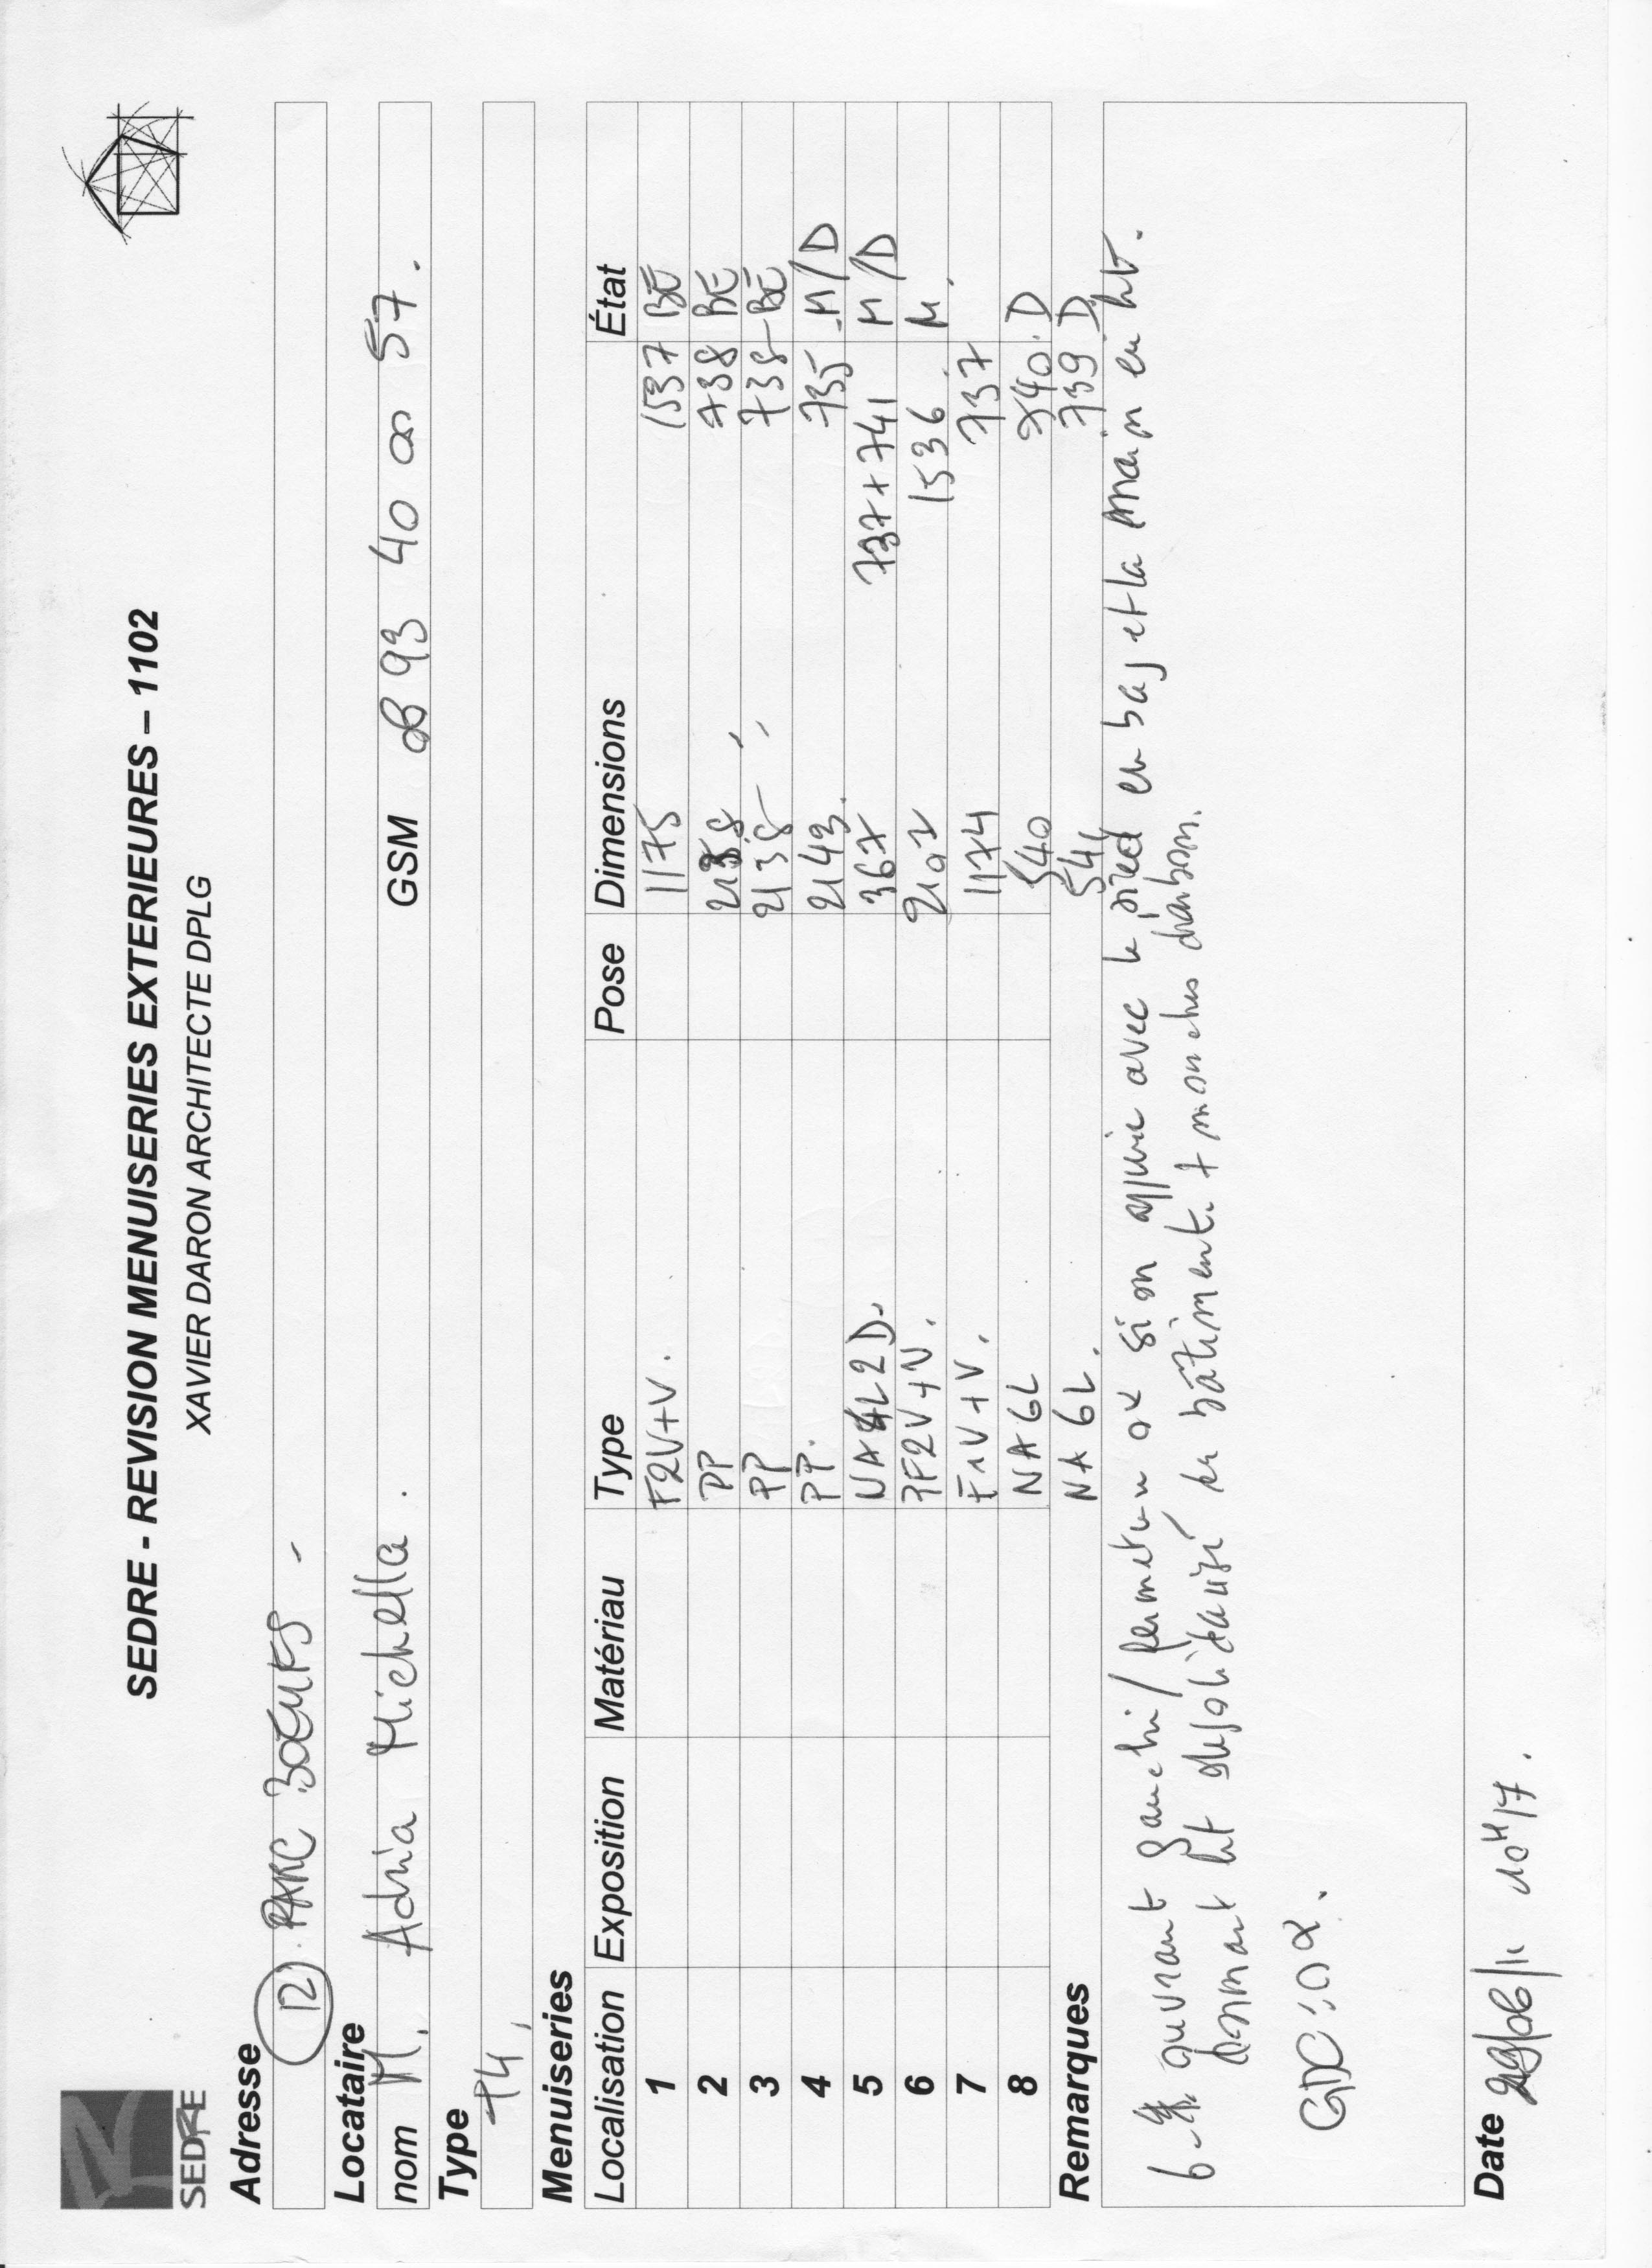 SEDRE
SEDRE - REVISION MENUISERIES EXTERIEURES – 1102
XAVIER DARON ARCHITECTE DPLG
Adresse
12 PARC BOEUFS
Locataire
nom M. Adria Michella. GSM 0693 40 00 57.
Type
T4
Menuiseries
Localisation Exposition Matériau Type Pose Dimensions État
1 F2V+V. 1175 1537 BE
2 PP 2138 738 BE
3 PP 2138 738 BE
4 PP. 2143. 735 M/D
5 NA4L2D. 367 737+741 M/D
6 PF2V+V. 2102 1536 M.
7 F1V+V. 1174 737
8 NA6L 540 940. D
NA6L. 541 739 D
Remarques
6- ouvrant gauchi/fermeture ok si on appuie avec le pied en bas et la main en ht.
dormant ht désolidarisé du bâtiment.
GDC: ok.
Date 29/06/11 10H17.